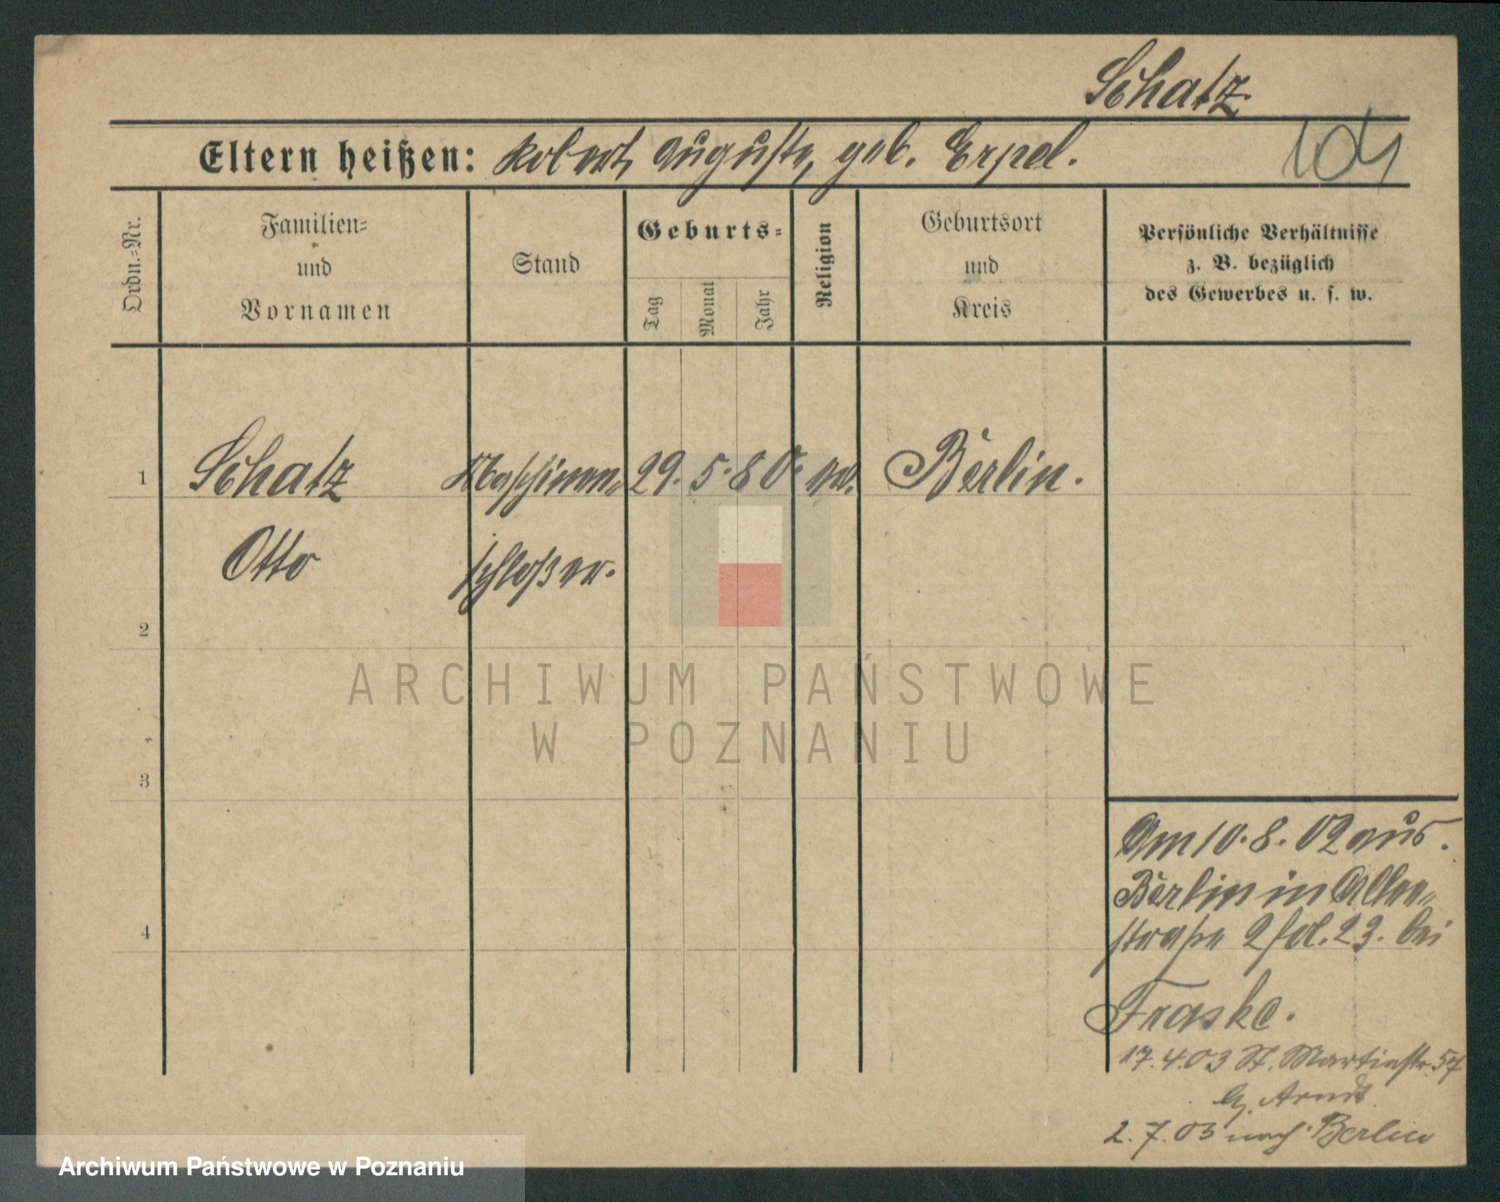 Schatz
104
Eltern heißen: Robert, Auguste, geb. Erpel.
Ordn.-Nr.
Familien-
und
Vornamen
Stand
Geburts-
Tag
Monat
Jahr
Religion
Geburtsort
und
Kreis
Persönliche Verhältnisse
z. B. bezüglich
des Gewerbes u. s. w.
1
Schatz Maschinen- 29. 5. 80. ev. Berlin.
Otto schlosser.
2
ARCHIWUM PAŃSTWOWE
W POZNANIU
3
4
Am 10. 8. 02 aus
Berlin in Allee-
straße 2 fol. 23. bei
Fraske.
17. 4. 03 St. Martinstr. 57
Arndt
2. 7. 03 nach Berlin
Archiwum Państwowe w Poznaniu